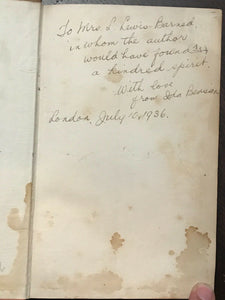 To Mrs. L Lewis Barned,
in whom the author
would have found
a kindred spirit.
With love
from Ida
London, July 1936.